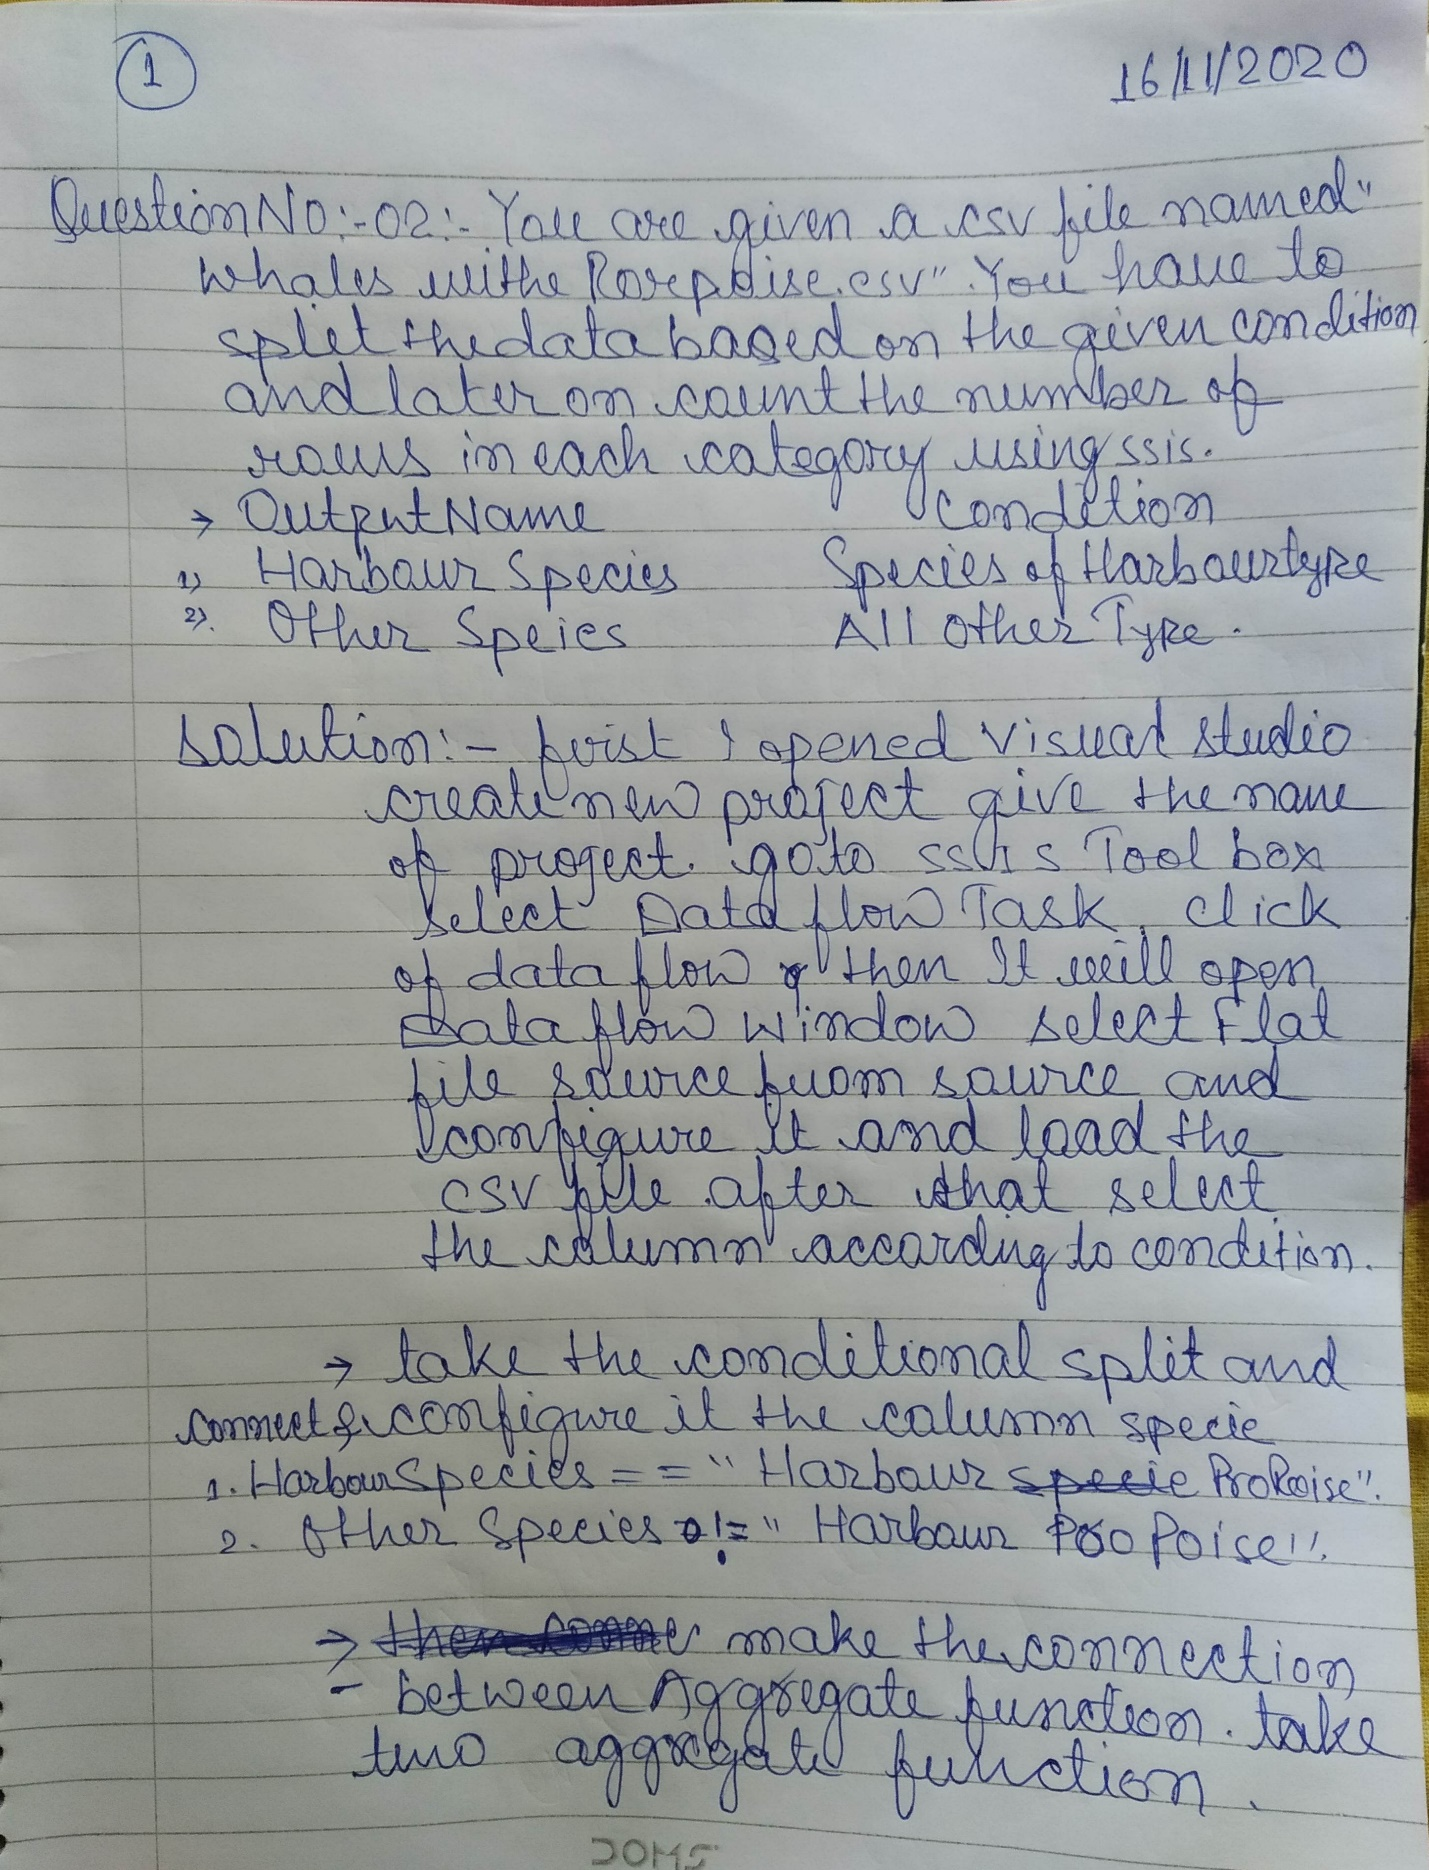 1
16/11/2020
Question No:-02:- You are given a csv file named "
whales withe Porepoise.csv". You have to
split the data based on the given condition
and later on count the number of
rows in each category using ssis.
→ Output Name Condition
1) Harbour Species Species of Harbour type
2). Other Speies All Other Type.
Solution:- first I opened Visual studio
create new project give the name
of project. go to ssis Tool box
select Data flow Task, click
of data flow then It will open
Data flow window select Flat
file source from source and
configure it and load the
csv file after that select
the column according to condition.
→ take the conditional split and
connect & configure it the column specie
1. Harbour Species == "Harbour specie ProPoise".
2. Other Species != "Harbour Poo Poise".
→ then conne make the connection
- between Aggregate function. take
two aggregate function.
DOMS